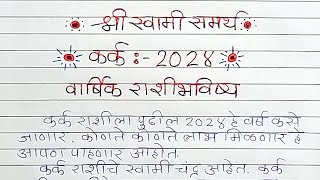 -श्री स्वामी समर्थ-
कर्क :- 2024
वार्षिक राशीभविष्य
कर्क राशीला पुढील 2024 हे वर्ष कसे
जाणार. कोणते कोणते लाभ मिळणार हे
आपण पाहणार आहोत.
कर्क राशीचे स्वामी चंद्र आहेत. कर्क